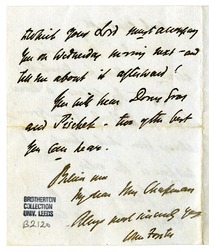 which your Lord must accompany
you on Wednesday morning next - and
tell me about it afterward!
You will hear Dorus Gras
and Pischek - two of the best
you can hear.
Believe me
My dear Mrs Chapman
Always most sincerely yours
John Forster
BROTHERTON
COLLECTION
UNIV. LEEDS
B2120